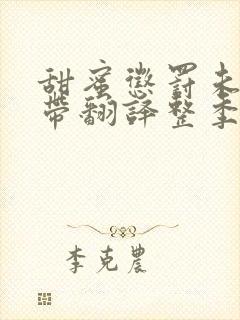 甜蜜懲罰未
帶翻譯整季
李克農